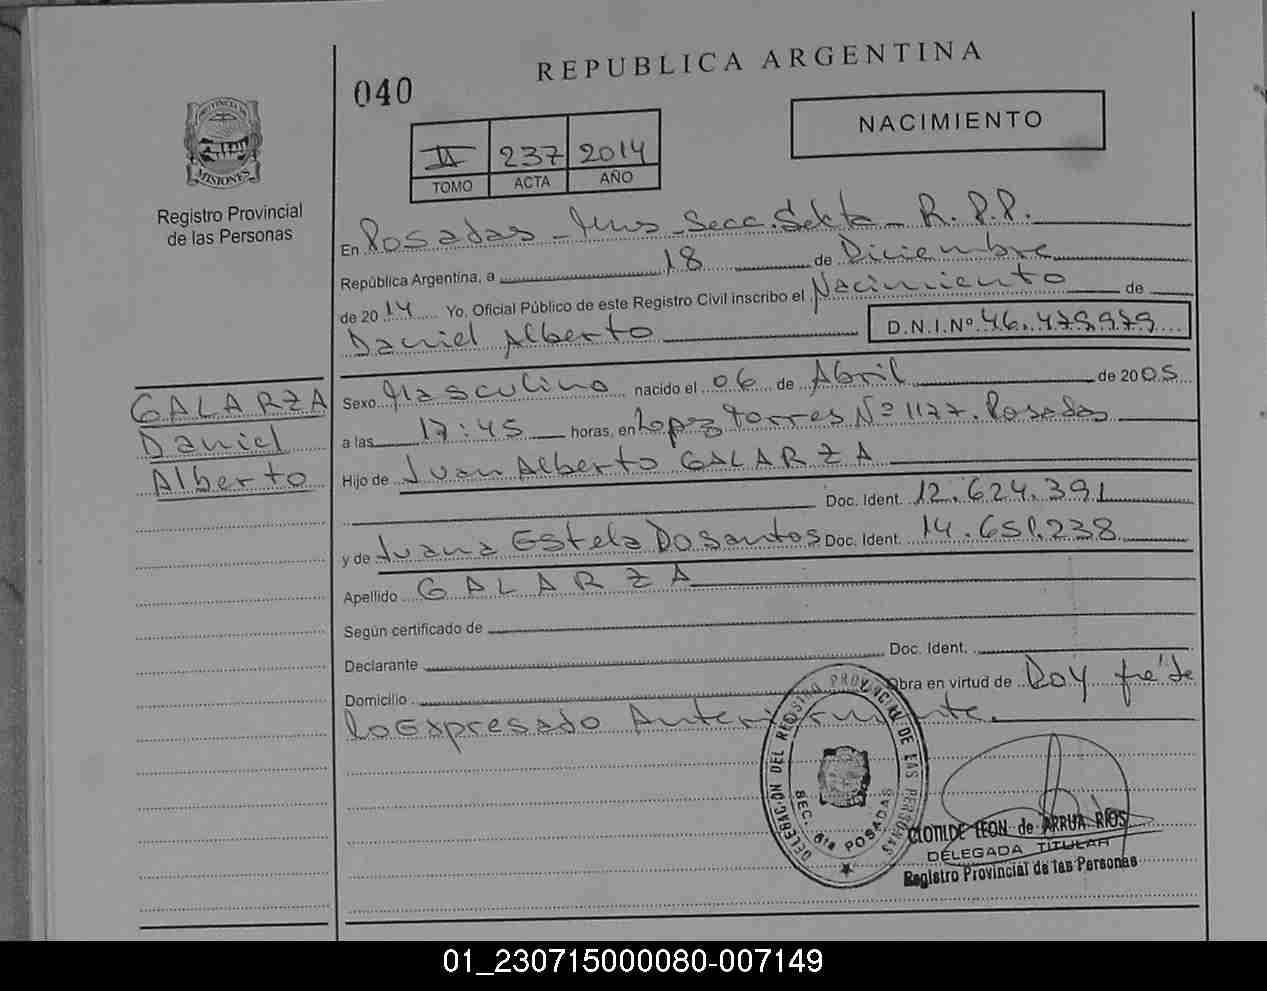 REPUBLICA ARGENTINA
040
NACIMIENTO
II 237 2014
TOMO ACTA AÑO
PROVINCIA DE
MISIONES
Registro Provincial
de las Personas
En Posadas - Mnes - Secc. Sexta - R.P.P.
República Argentina, a 18 de Diciembre
de 2014 Yo, Oficial Público de este Registro Civil inscribo el Nacimiento de
Daniel Alberto D.N.I.Nº 46.479.979
GALARZA
Daniel
Alberto
Sexo Masculino nacido el 06 de Abril de 2005
a las 17:45 horas, en Lopez Torres Nº 1177. Posadas
Hijo de Juan Alberto GALARZA
Doc. Ident. 12.624.391
y de Juana Estela Dosantos Doc. Ident. 14.651.238
Apellido GALARZA
Según certificado de
Declarante Doc. Ident.
Domicilio Obra en virtud de Doy fé de
lo Expresado Anteriormente.
DELEGACION DEL REGISTRO PROVINCIAL DE LAS PERSONAS
SEC. 6ta POSADAS
CLOTILDE LEON de ARRUA RIOS
DELEGADA TITULAR
Registro Provincial de las Personas
01_230715000080-007149